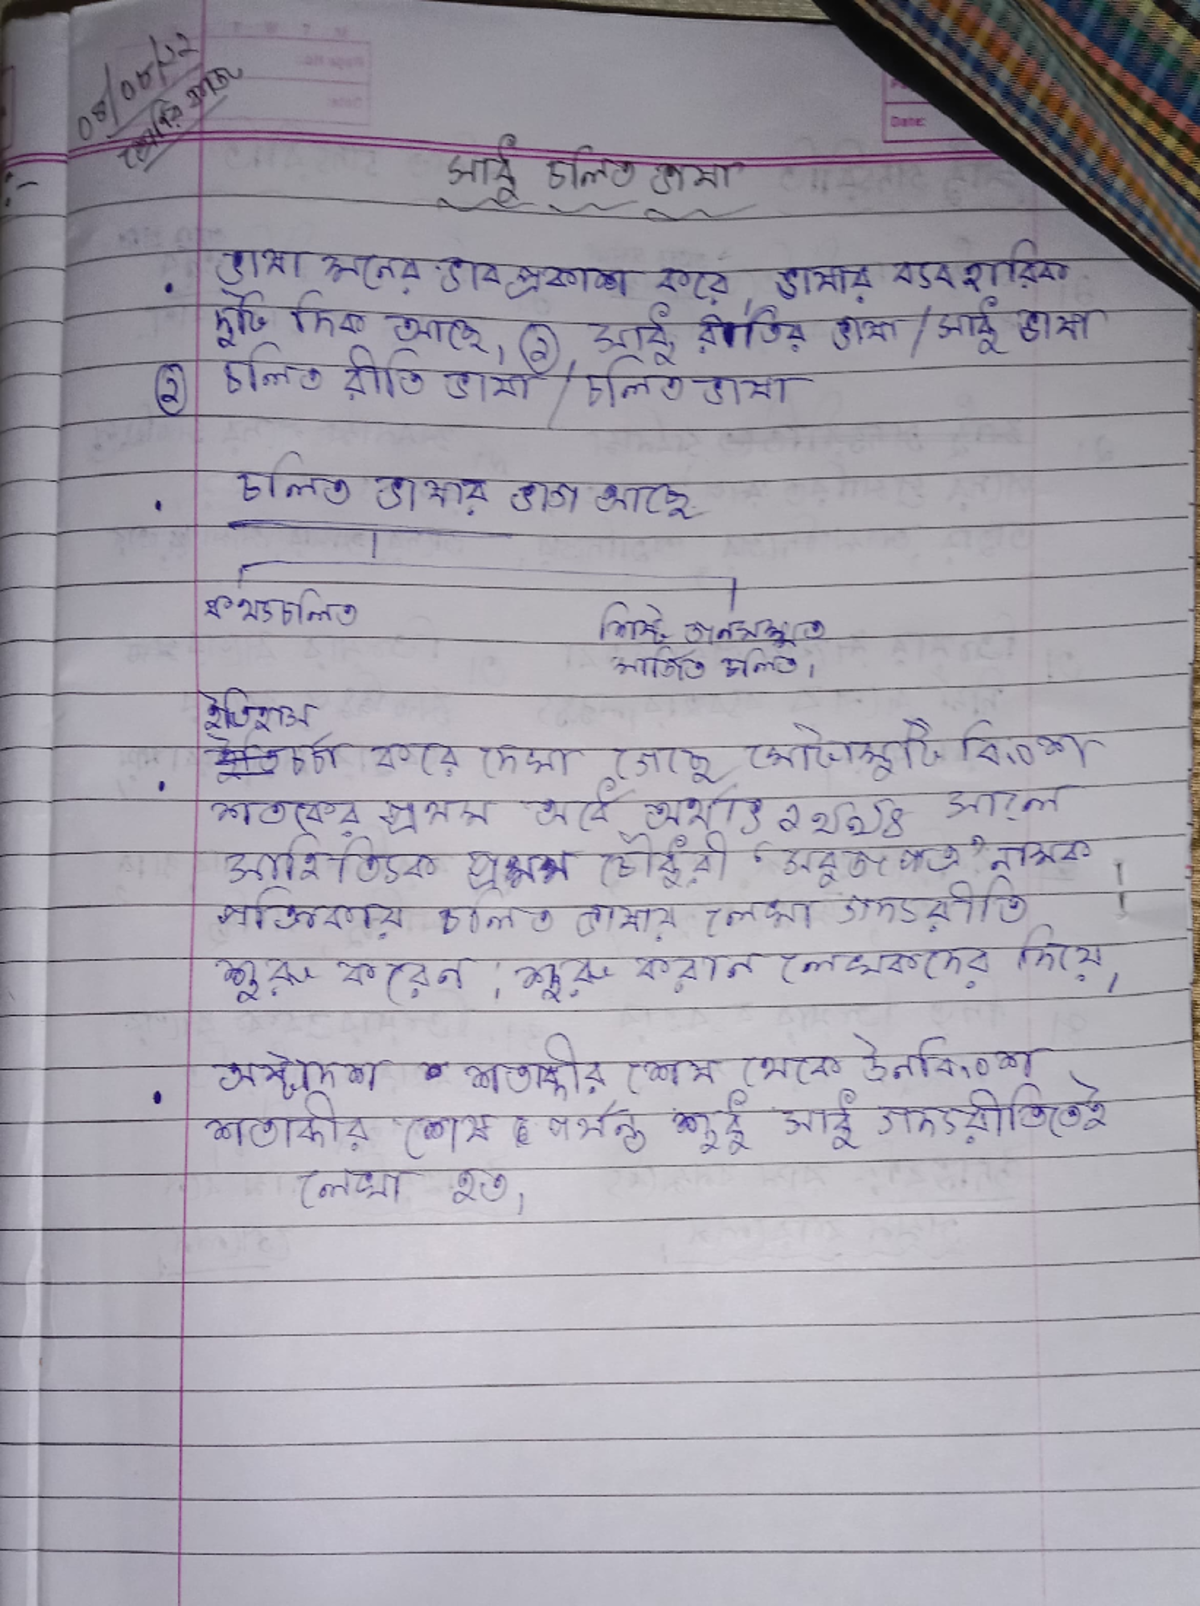 ০৪/০৮/২২
শ্রেণির কাজ
সাধু চলিত ভাষা
ভাষা মনের ভাব প্রকাশ করে, ভাষার ব্যবহারিক
দুটি দিক আছে, ১ সাধু রীতির ভাষা / সাধু ভাষা
২ চলিত রীতি ভাষা / চলিত ভাষা
চলিত ভাষার ভাগ আছে
কথ্যচলিত
শিষ্ট জনসম্মত
মার্জিত চলিত।
ইতিহাস
চর্চা করে দেখা গেছে মোটামুটি বিংশ
শতকের প্রথম অর্ধে অর্থাৎ ১৯১৪ সালে
সাহিত্যিক প্রমথ চৌধুরী 'সবুজপত্র' নামক
পত্রিকায় চলিত ভাষায় লেখা গদ্যরীতি
শুরু করেন, শুরু করান লেখকদের দিয়ে,
অষ্টাদশ শতাব্দীর শেষ থেকে ঊনবিংশ
শতাব্দীর শেষ পর্যন্ত শুধু সাধু গদ্যরীতিতেই
লেখা হত,